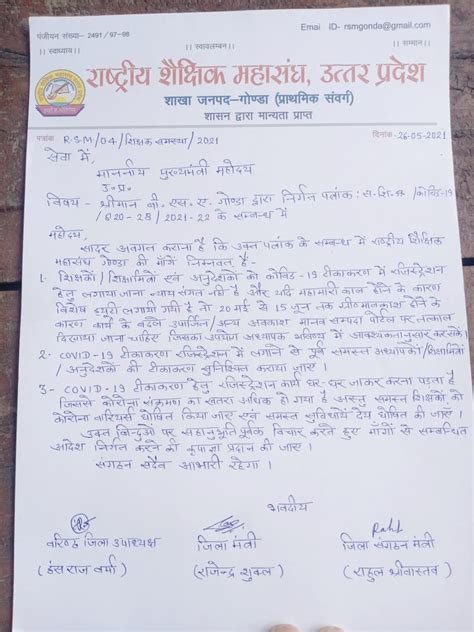 पंजीयन संख्या- 2491/97-98
Emai ID- rsmgonda@gmail.com
।। स्वाध्याय।। ।। स्वावलम्बन।। ।। सम्मान।।
राष्ट्रीय शैक्षिक महासंघ, उत्तर प्रदेश
शाखा जनपद-गोण्डा (प्राथमिक संवर्ग)
शासन द्वारा मान्यता प्राप्त
पत्रांक R.S.M/04/शिक्षक समस्या/2021 दिनांक-26-05-2021
सेवा में,
माननीय मुख्यमंत्री महोदय
उ.प्र.
विषय - श्रीमान बी. एस. ए. गोण्डा द्वारा निर्गत पत्रांक: स.शि.अ./कोविड-19
/820-28/2021-22 के सम्बन्ध में
महोदय,
सादर अवगत कराना है कि उक्त पत्रांक के सम्बन्ध में राष्ट्रीय शैक्षिक
महासंघ गोण्डा की मांगें निम्नवत् है:-
1. शिक्षकों/शिक्षामित्रों एवं अनुदेशकों को कोविड-19 टीकाकरण में रजिस्ट्रेशन
हेतु लगाया जाना न्याय संगत नही है और यदि महामारी काल होने के कारण
विशेष ड्यूटी लगायी गयी है तो 20 मई से 15 जून तक ग्रीष्मावकाश होने के
कारण कार्य के बदले उपार्जित/अन्य अवकाश मानव सम्पदा पोर्टल पर तत्काल
दिखाया जाना चाहिए जिसका उपयोग अध्यापक भविष्य में आवश्यकतानुसार कर सके।
2- COVID-19 टीकाकरण रजिस्ट्रेशन में लगाने से पूर्व समस्त अध्यापकों/शिक्षामित्रों
/अनुदेशकों की टीकाकरण सुनिश्चित कराया जाए।
3- COVID-19 टीकाकरण हेतु रजिस्ट्रेशन कार्य घर-घर जाकर करना पड़ता है
जिससे कोरोना संक्रमण का खतरा अधिक हो गया है अस्तु समस्त शिक्षकों को
कोरोना वारियर्स घोषित किया जाए एवं समस्त सुविधायें देय घोषित की जाए।
उक्त बिन्दुओं पर सहानुभूति पूर्वक विचार करते हुए माँगों से सम्बन्धित
आदेश निर्गत करने की कृपा प्रदान की जाए।
संगठन सदैव आभारी रहेगा।
भवदीय
Rahl
वरिष्ठ जिला उपाध्यक्ष जिला मंत्री जिला संगठन मंत्री
(हंसराज वर्मा) (राजेन्द्र शुक्ल) (राहुल श्रीवास्तव)